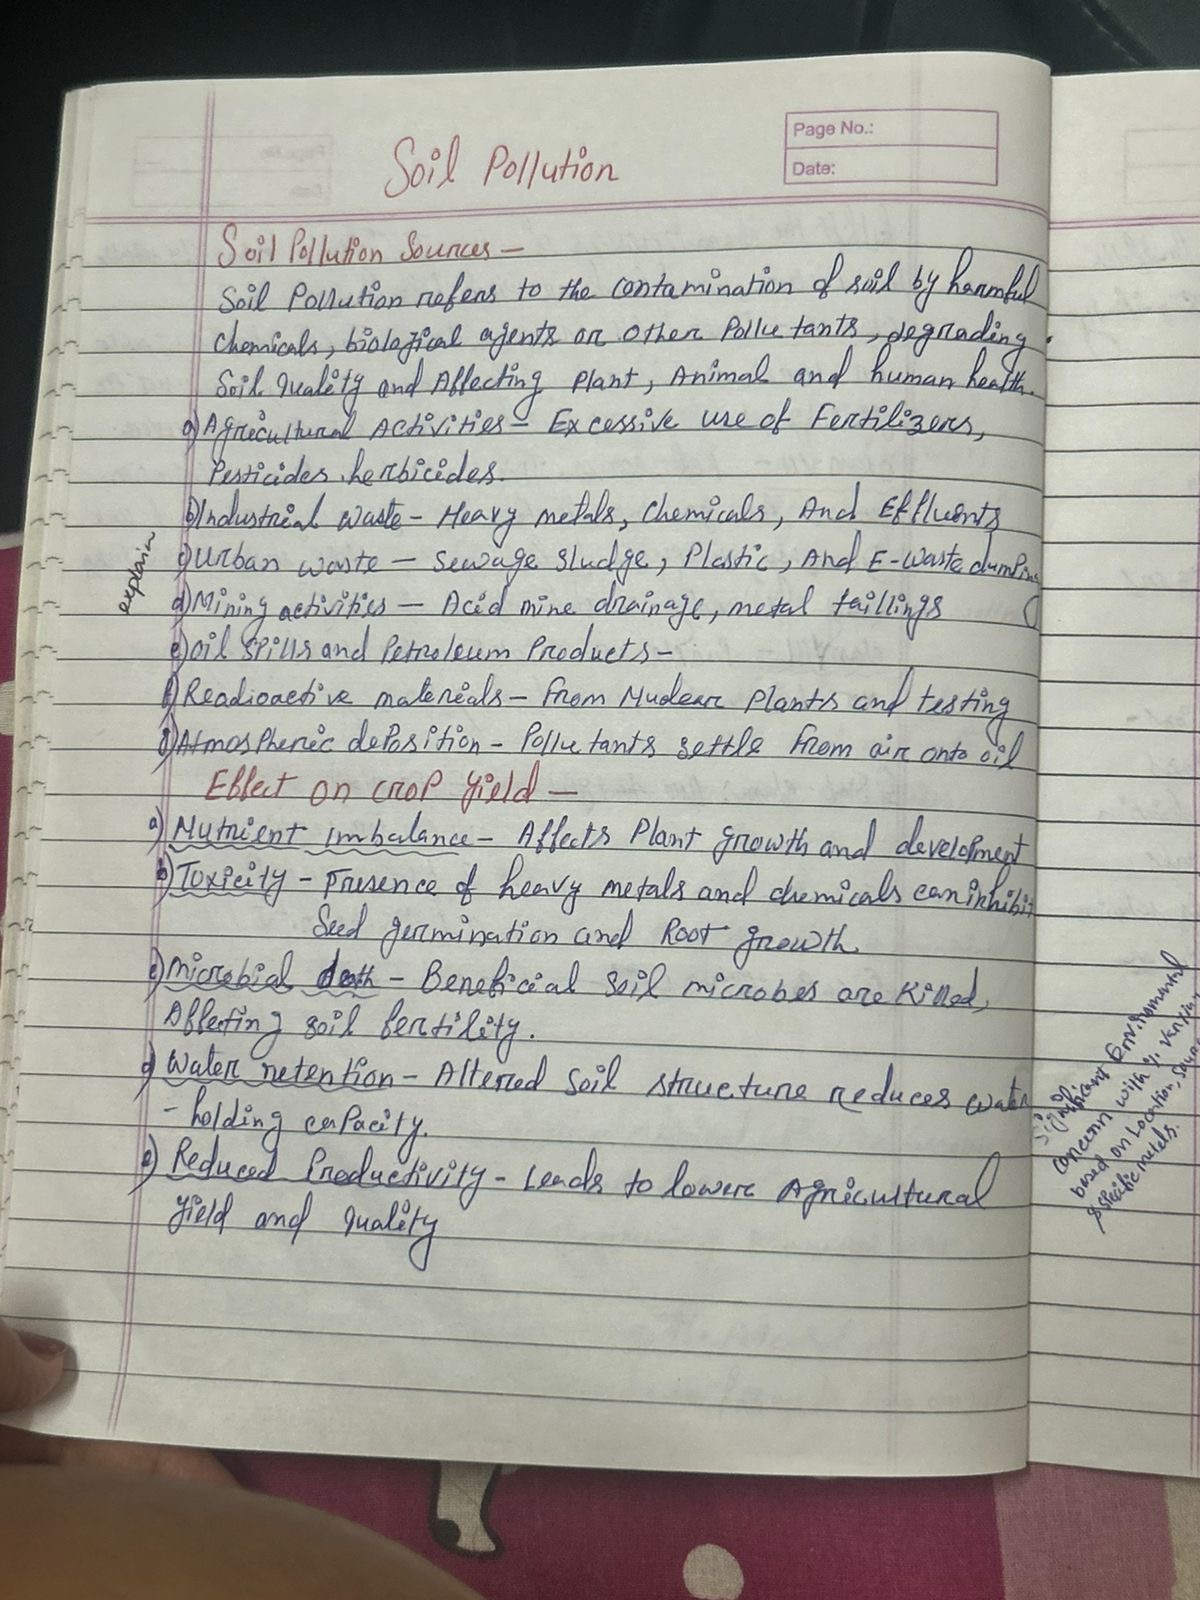 Page No.:
Date:
Soil Pollution
Soil Pollution Sources –
Soil Pollution refers to the contamination of soil by harmful
chemicals, biological agents or other Pollutants, degrading
Soil Quality and Affecting Plant, Animal and human health.
a) Agricultural Activities – Excessive use of Fertilizers,
Pesticides, herbicides.
b) Industrial waste – Heavy metals, Chemicals, And Effluents
c) Urban waste – Sewage sludge, Plastic, And E-waste dumping
explain
d) Mining activities – Acid mine drainage, metal taillings
e) Oil spills and Petroleum Products –
f) Readioactive materials – From Nuclear Plants and testing
g) Atmospheric deposition – Pollutants settle from air onto oil
Effect on crop yield –
a) Nutrient imbalance – Affects Plant growth and development
b) Toxicity – Presence of heavy metals and chemicals can inhibit
Seed germination and Root growth
c) Microbial death – Beneficial soil microbes are Killed,
Affecting soil fertility.
d) Water retention – Altered soil structure reduces water
- holding capacity.
e) Reduced Productivity – Leads to lower Agricultural
yield and quality
Significant Environmental
concern with % varying
based on Location,
specific metals.